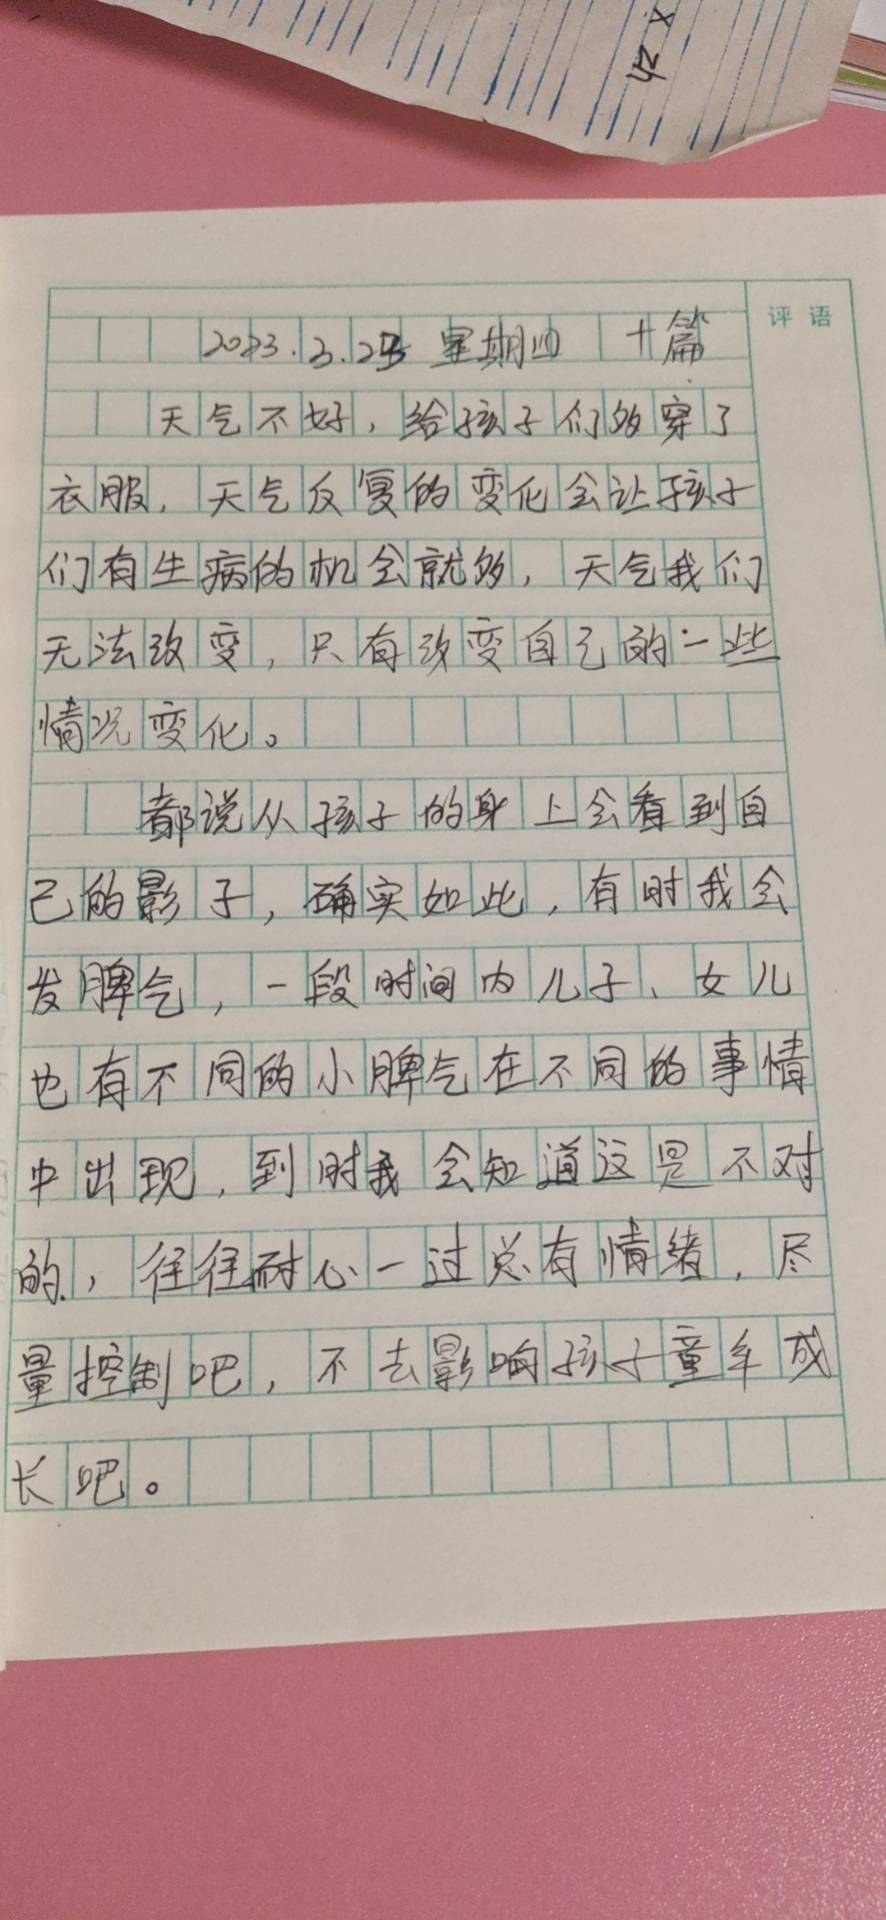 x zh
评语
2023.3.23 星期四 十篇
天气不好，给孩子们多穿了
衣服，天气反复的变化会让孩子
们有生病的机会就多，天气我们
无法改变，只有改变自己的一些
情况变化。
都说从孩子的身上会看到自
己的影子，确实如此，有时我会
发脾气，一段时间内儿子、女儿
也有不同的小脾气在不同的事情
中出现，到时我会知道这是不对
的，往往耐心一过总有情绪，尽
量控制吧，不去影响孩子童年成
长吧。